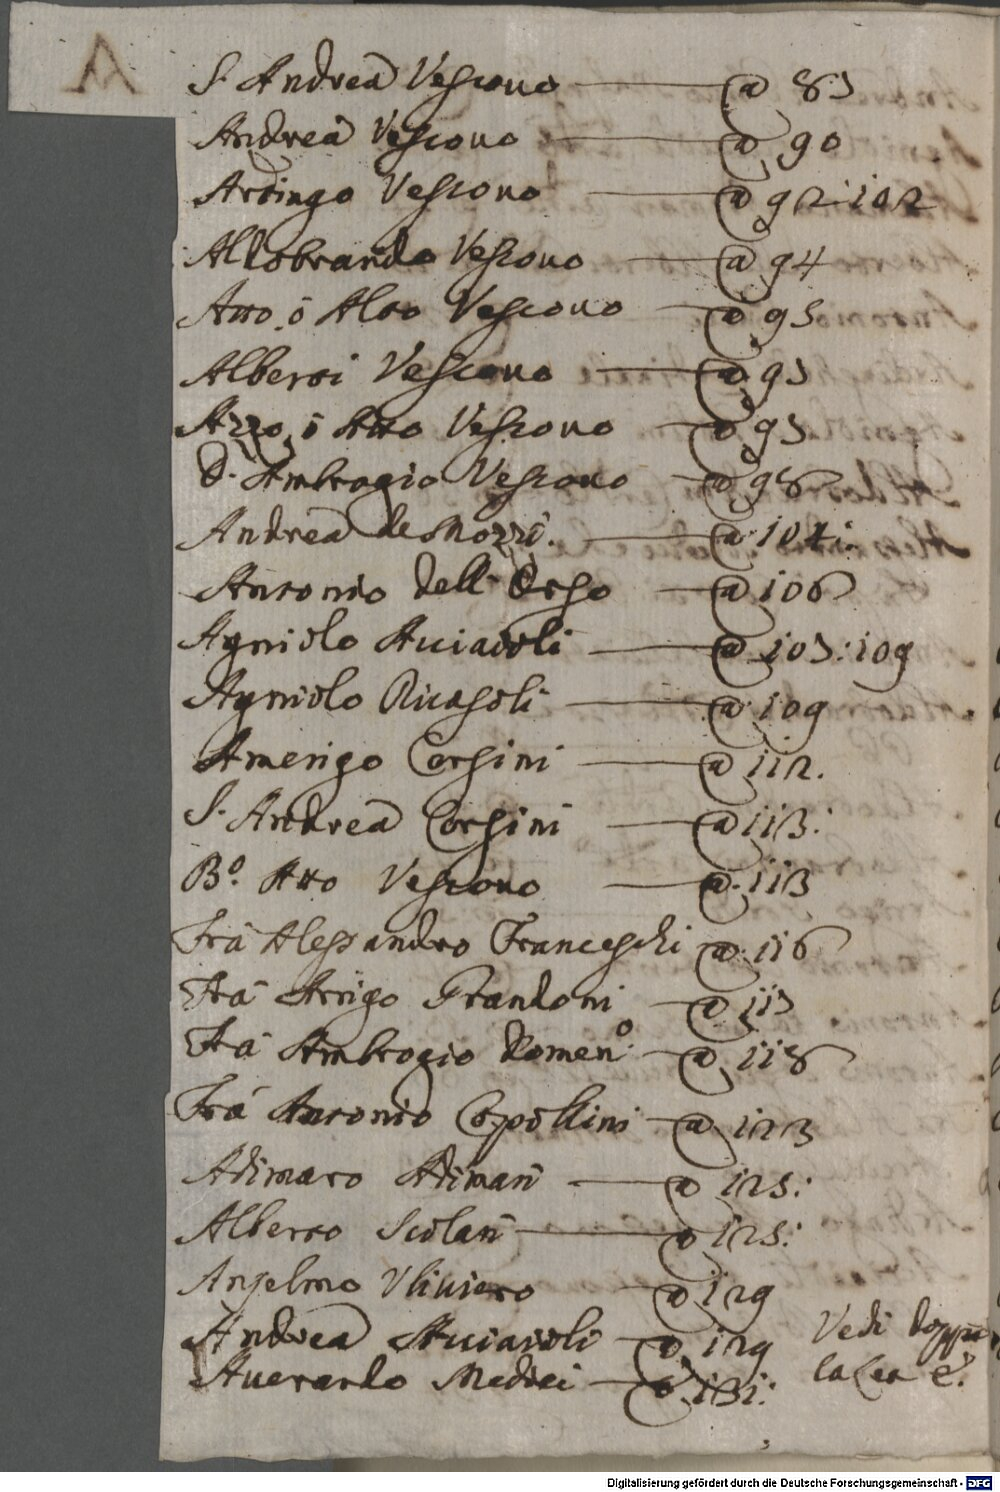 A
S. Andrea Vescouo @ 85
Andrea Vescouo @ 90
Ardingo Vescouo @ 92:102
Aldobrando Vescouo @ 94
Atto, ò Alto Vescouo @ 95
Alberti Vescouo @ 95
Azzo, ò Atto Vescouo @ 95
B. Ambrogio Vescouo @ 98
Andrea de Mozzi. @ 104:
Antonio dell' Orso @ 106
Agniolo Acciaioli @ 107:109
Agniolo Ricasoli @ 109
Amerigo Corsini @ 112.
S. Andrea Corsini @ 113:
Bº. Atto Vescouo @ 113
Frà Alessandro Franceschi @ 116
Frà Arrigo Grandoni @ 117
Frà Ambrogio Domenº: @ 118
Frà Antonio Copollini @ 123
Adimaro Adimari @ 125:
Alberto Scolari @ 125:
Anselmo Uliviero @ 129
Andrea Acciaioli @ 129 Vedi doppo
Auerardo Medici @ 131: la E.